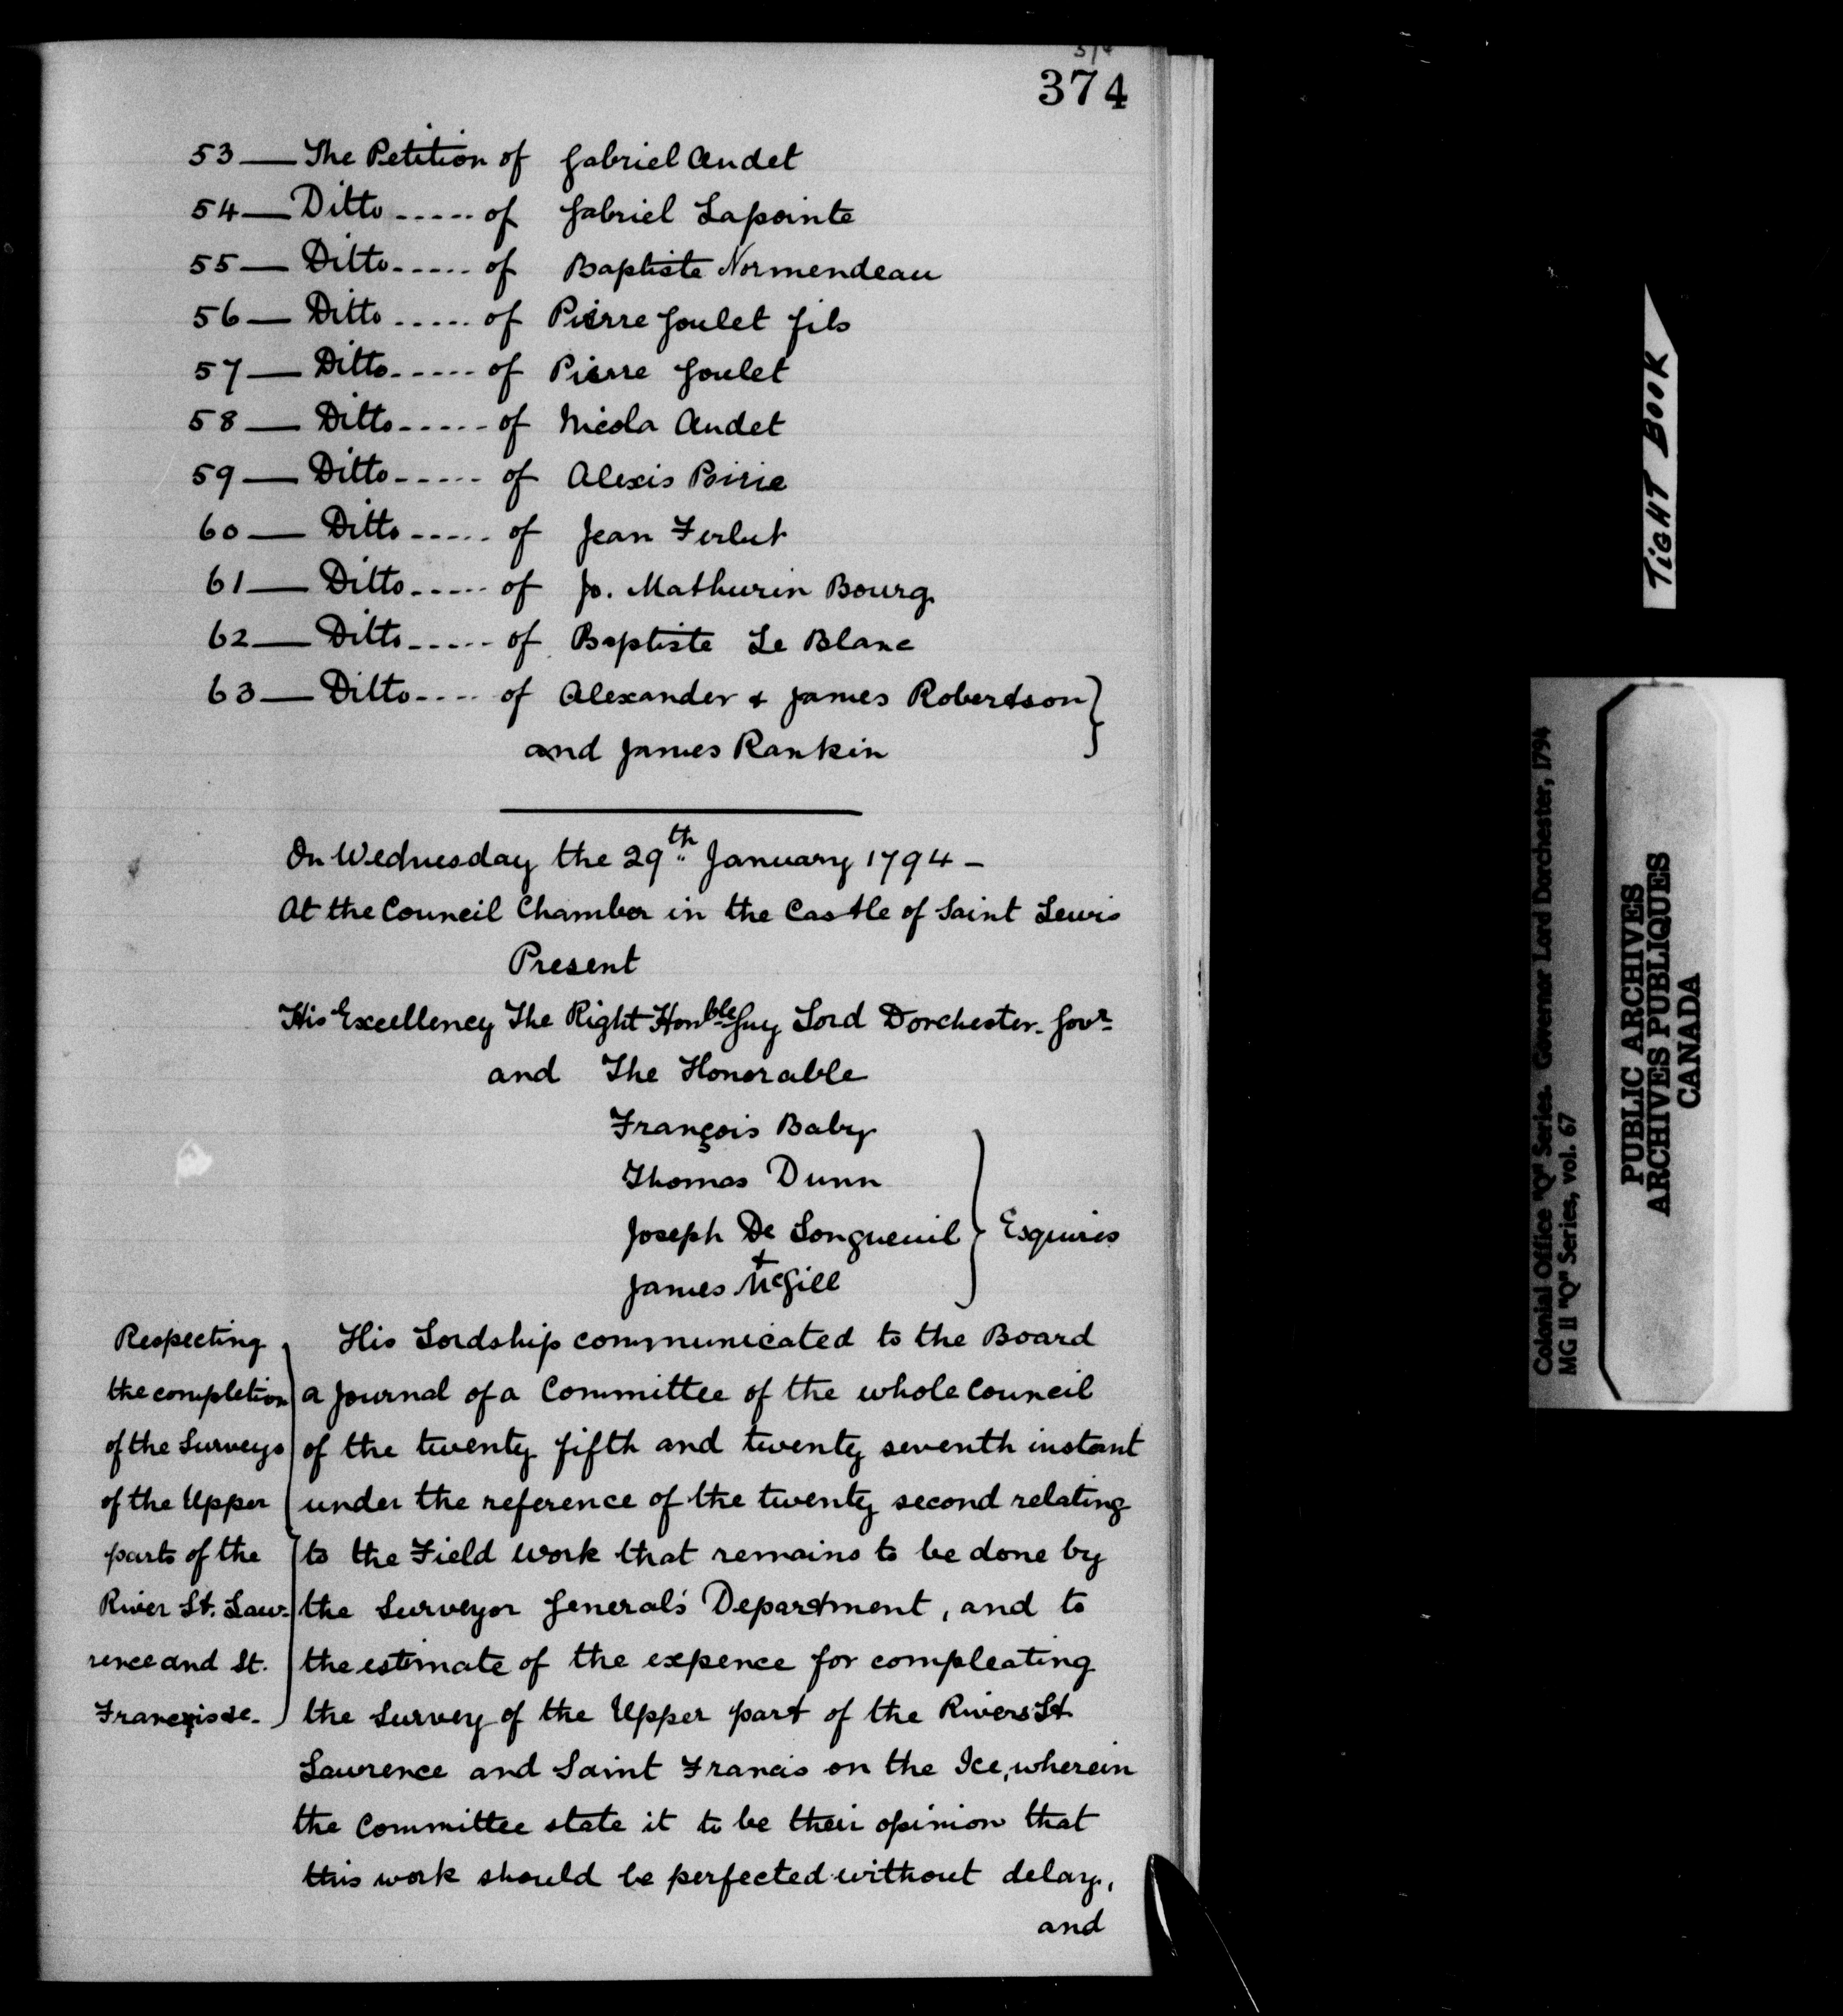 374
53 — The Petition of Gabriel Audet
54 — Ditto ----- of Gabriel Lapointe
55 — Ditto ----- of Baptiste Normendeau
56 — Ditto ----- of Pierre Goulet fils
57 — Ditto ----- of Pierre Goulet
58 — Ditto ----- of Nicola Audet
59 — Ditto ----- of Alexis Poirie
60 — Ditto ----- of Jean
61 — Ditto ----- of Jo. Mathurin Bourg
62 — Ditto ----- of Baptiste Le Blanc
63 — Ditto ---- of Alexander & James Robertson
and James Rankin
On Wednesday the 29th January 1794 –
At the Council Chamber in the Castle of Saint Lewis
Present
His Excellency The Right Honble Guy Lord Dorchester – Govr
and The Honorable
François Baby
Thomas Dunn
Joseph De Longueuil
&
James McGill
Esquires
Respecting
the completion
of the Surveys
of the Upper
parts of the
River St. Law-
rence and St.
His Lordship communicated to the Board
a Journal of a Committee of the whole Council
of the twenty fifth and twenty seventh instant
under the reference of the twenty second relating
to the Field work that remains to be done by
the Surveyor General's Department, and to
the estimate of the expence for compleating
the Survey of the Upper part of the Rivers St.
Lawrence and Saint Francis on the Ice, wherein
the Committee state it to be their opinion that
this work should be perfected without delay,
and
TIGHT BOOK
Colonial Office "Q" Series. Governor Lord Dorchester, 1794
MG 11 "Q" Series, vol. 67
PUBLIC ARCHIVES
ARCHIVES PUBLIQUES
CANADA